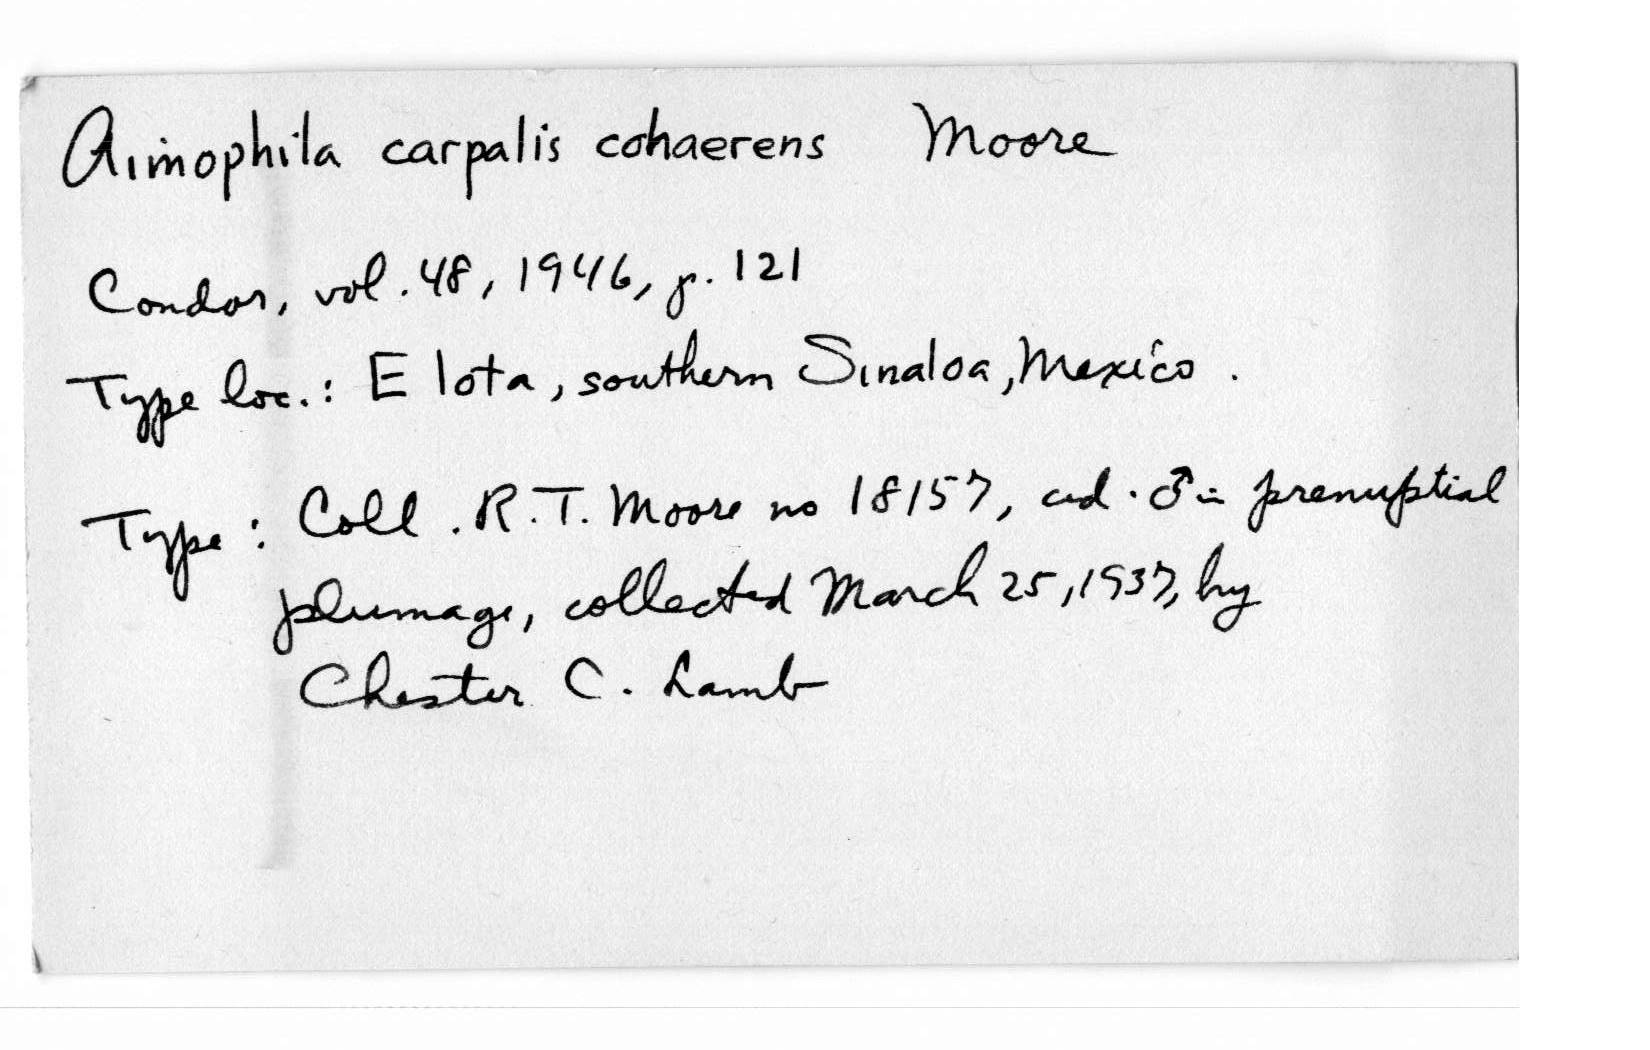 Aimophila carpalis cohaerens Moore
Condor, vol. 48, 1946, p. 121
Type loc.: Elota, southern Sinaloa, Mexico.
Type: Coll. R.T. Moore no 18157, ad. ♂ in prenuptial
plumage, collected March 25, 1937, by
Chester C. Lamb